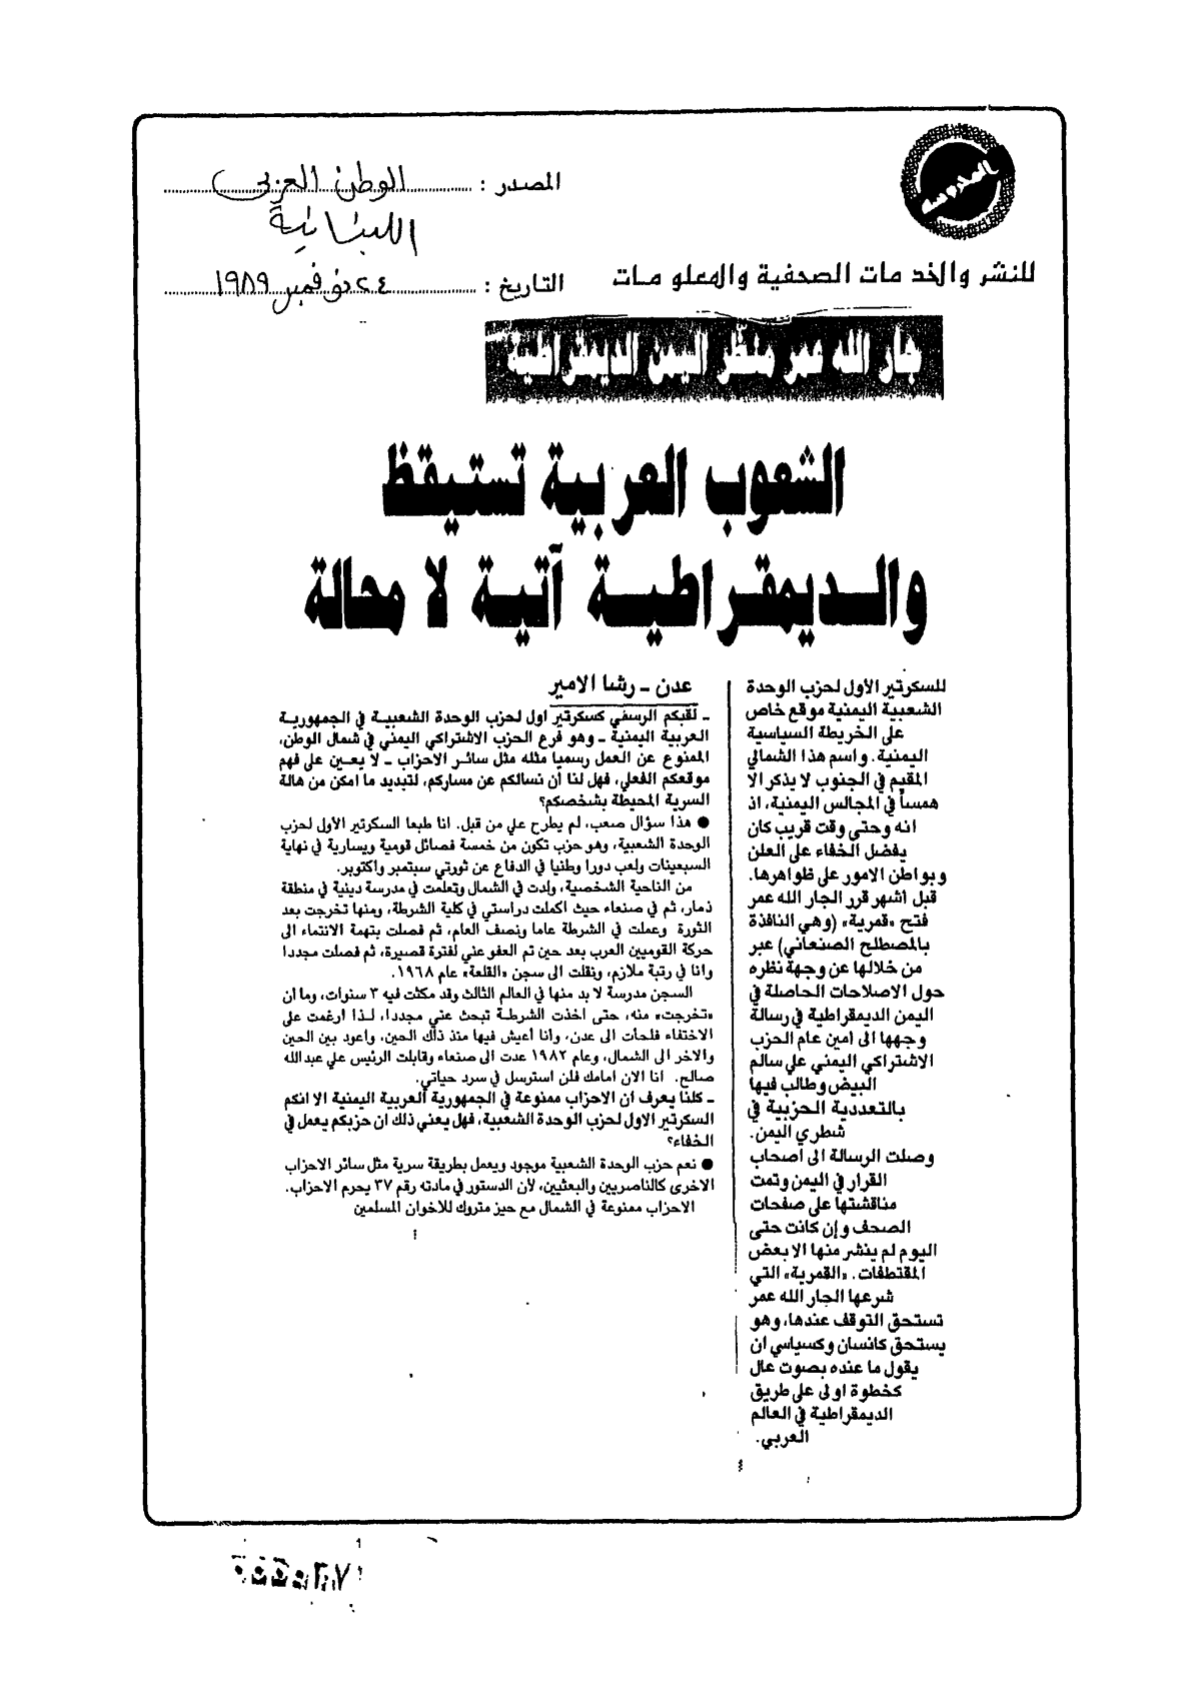 المحروسة
للنشر والخدمات الصحفية والمعلومات
المصدر : الوطن العربي
اللبنانية
التاريخ : ٢٤ نوفمبر ١٩٨٩
جار الله عمر منظّر اليمن الديمقراطية
الشعوب العربية تستيقظ
والديمقراطية آتية لا محالة
للسكرتير الاول لحزب الوحدة
الشعبية اليمنية موقع خاص
على الخريطة السياسية
اليمنية. واسم هذا الشمالي
المقيم في الجنوب لا يذكر الا
همساً في المجالس اليمنية، اذ
انه وحتى وقت قريب كان
يفضل الخفاء على العلن
وبواطن الامور على ظواهرها.
قبل اشهر قرر الجار الله عمر
فتح «قمرية» (وهي النافذة
بالمصطلح الصنعاني) عبر
من خلالها عن وجهة نظره
حول الاصلاحات الحاصلة في
اليمن الديمقراطية في رسالة
وجهها الى امين عام الحزب
الاشتراكي اليمني علي سالم
البيض وطالب فيها
بالتعددية الحزبية في
شطري اليمن.
وصلت الرسالة الى اصحاب
القرار في اليمن وتمت
مناقشتها على صفحات
الصحف وإن كانت حتى
اليوم لم ينشر منها الا بعض
المقتطفات. «القمرية» التي
شرعها الجار الله عمر
تستحق التوقف عندها، وهو
يستحق كانسان وكسياسي ان
يقول ما عنده بصوت عال
كخطوة اولى على طريق
الديمقراطية في العالم
العربي.
عدن ـ رشا الامير
ـ لقبكم الرسمي كسكرتير اول لحزب الوحدة الشعبية في الجمهورية
العربية اليمنية ـ وهو فرع الحزب الاشتراكي اليمني في شمال الوطن،
الممنوع عن العمل رسميا مثله مثل سائر الاحزاب ـ لا يعين على فهم
موقعكم الفعلي، فهل لنا أن نسالكم عن مساركم، لتبديد ما امكن من هالة
السرية المحيطة بشخصكم؟
● هذا سؤال صعب، لم يطرح علي من قبل. انا طبعا السكرتير الاول لحزب
الوحدة الشعبية، وهو حزب تكون من خمسة فصائل قومية ويسارية في نهاية
السبعينات ولعب دورا وطنيا في الدفاع عن ثورتي سبتمبر واكتوبر.
من الناحية الشخصية، ولدت في الشمال وتعلمت في مدرسة دينية في منطقة
ذمار، ثم في صنعاء حيث اكملت دراستي في كلية الشرطة، ومنها تخرجت بعد
الثورة وعملت في الشرطة عاما ونصف العام، ثم فصلت بتهمة الانتماء الى
حركة القوميين العرب بعد حين تم العفو عني لفترة قصيرة، ثم فصلت مجددا
وانا في رتبة ملازم، ونقلت الى سجن «القلعة» عام ١٩٦٨.
السجن مدرسة لا بد منها في العالم الثالث وقد مكثت فيه ٣ سنوات، وما أن
«تخرجت» منه، حتى اخذت الشرطة تبحث عني مجددا، لذا ارغمت على
الاختفاء فلجأت الى عدن، وأنا أعيش فيها منذ ذلك الحين، واعود بين الحين
والاخر الى الشمال، وعام ١٩٨٢ عدت الى صنعاء وقابلت الرئيس علي عبدالله
صالح. انا الان امامك فلن استرسل في سرد حياتي.
ـ كلنا يعرف ان الاحزاب ممنوعة في الجمهورية العربية اليمنية الا انكم
السكرتير الاول لحزب الوحدة الشعبية، فهل يعني ذلك ان حزبكم يعمل في
الخفاء؟
● نعم حزب الوحدة الشعبية موجود ويعمل بطريقة سرية مثل سائر الاحزاب
الاخرى كالناصريين والبعثيين، لأن الدستور في مادته رقم ٣٧ يحرم الاحزاب.
الاحزاب ممنوعة في الشمال مع حيز متروك للاخوان المسلمين